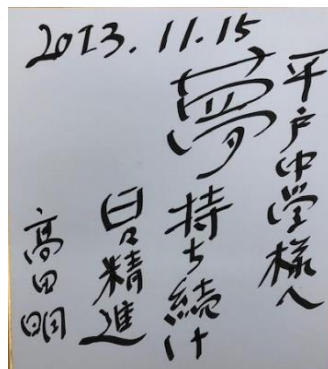 2013.11.15
平戸中学様へ
夢
持ち続け
日々精進
高田明